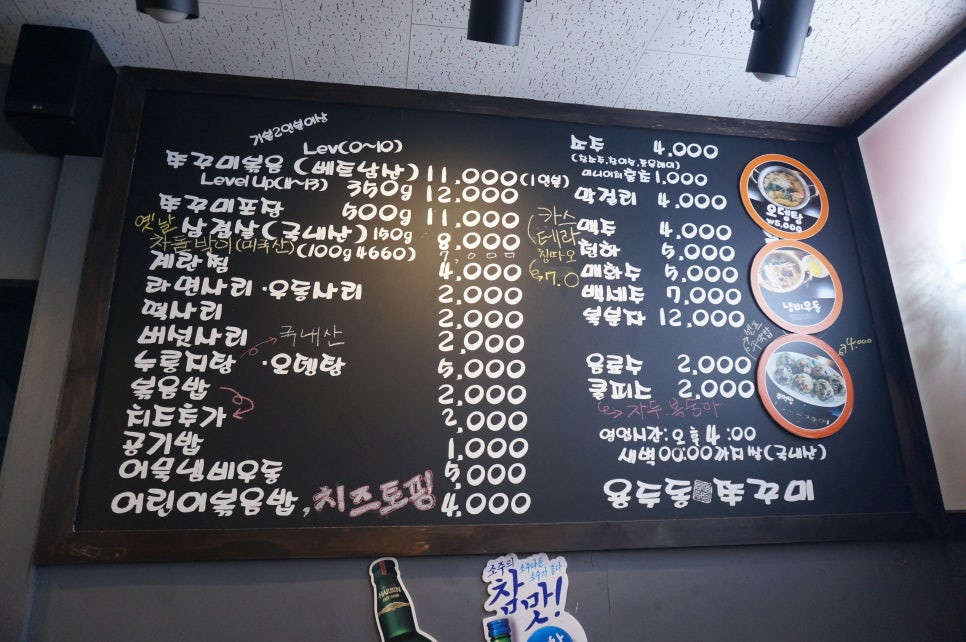 기본2인분이상
Lev(0~10)
쭈꾸미볶음 (베트남산) 11,000 (1인분)
Level up(11~13) 350g 12,000
쭈꾸미포장 500g 11,000
옛날 삼겹살(국내산) 150g 8,000
차돌박이(미국산)(100g 4660) 7,000
계란찜 4,000
라면사리·우동사리 2,000
떡사리 2,000
버섯사리 2,000
국내산
누룽지탕 ·오뎅탕 5,000
볶음밥 2,000
치즈추가 2,000
공기밥 1,000
어묵냄비우동 5,000
어린이볶음밥, 치즈토핑 4,000
소주 4,000
1,000
막걸리 4,000
카스
테라
칭따오
7.0
맥주 4,000
청하 5,000
매화수 5,000
백세주 7,000
복분자 12,000
음료수 2,000
쿨피스 2,000
자두·복숭아
영업시간:오후 4:00
새벽
용두동 쭈꾸미
오뎅탕
₩5,000
냄비우동
주먹밥
4,000
LG
HARBIN
소주의
참맛!